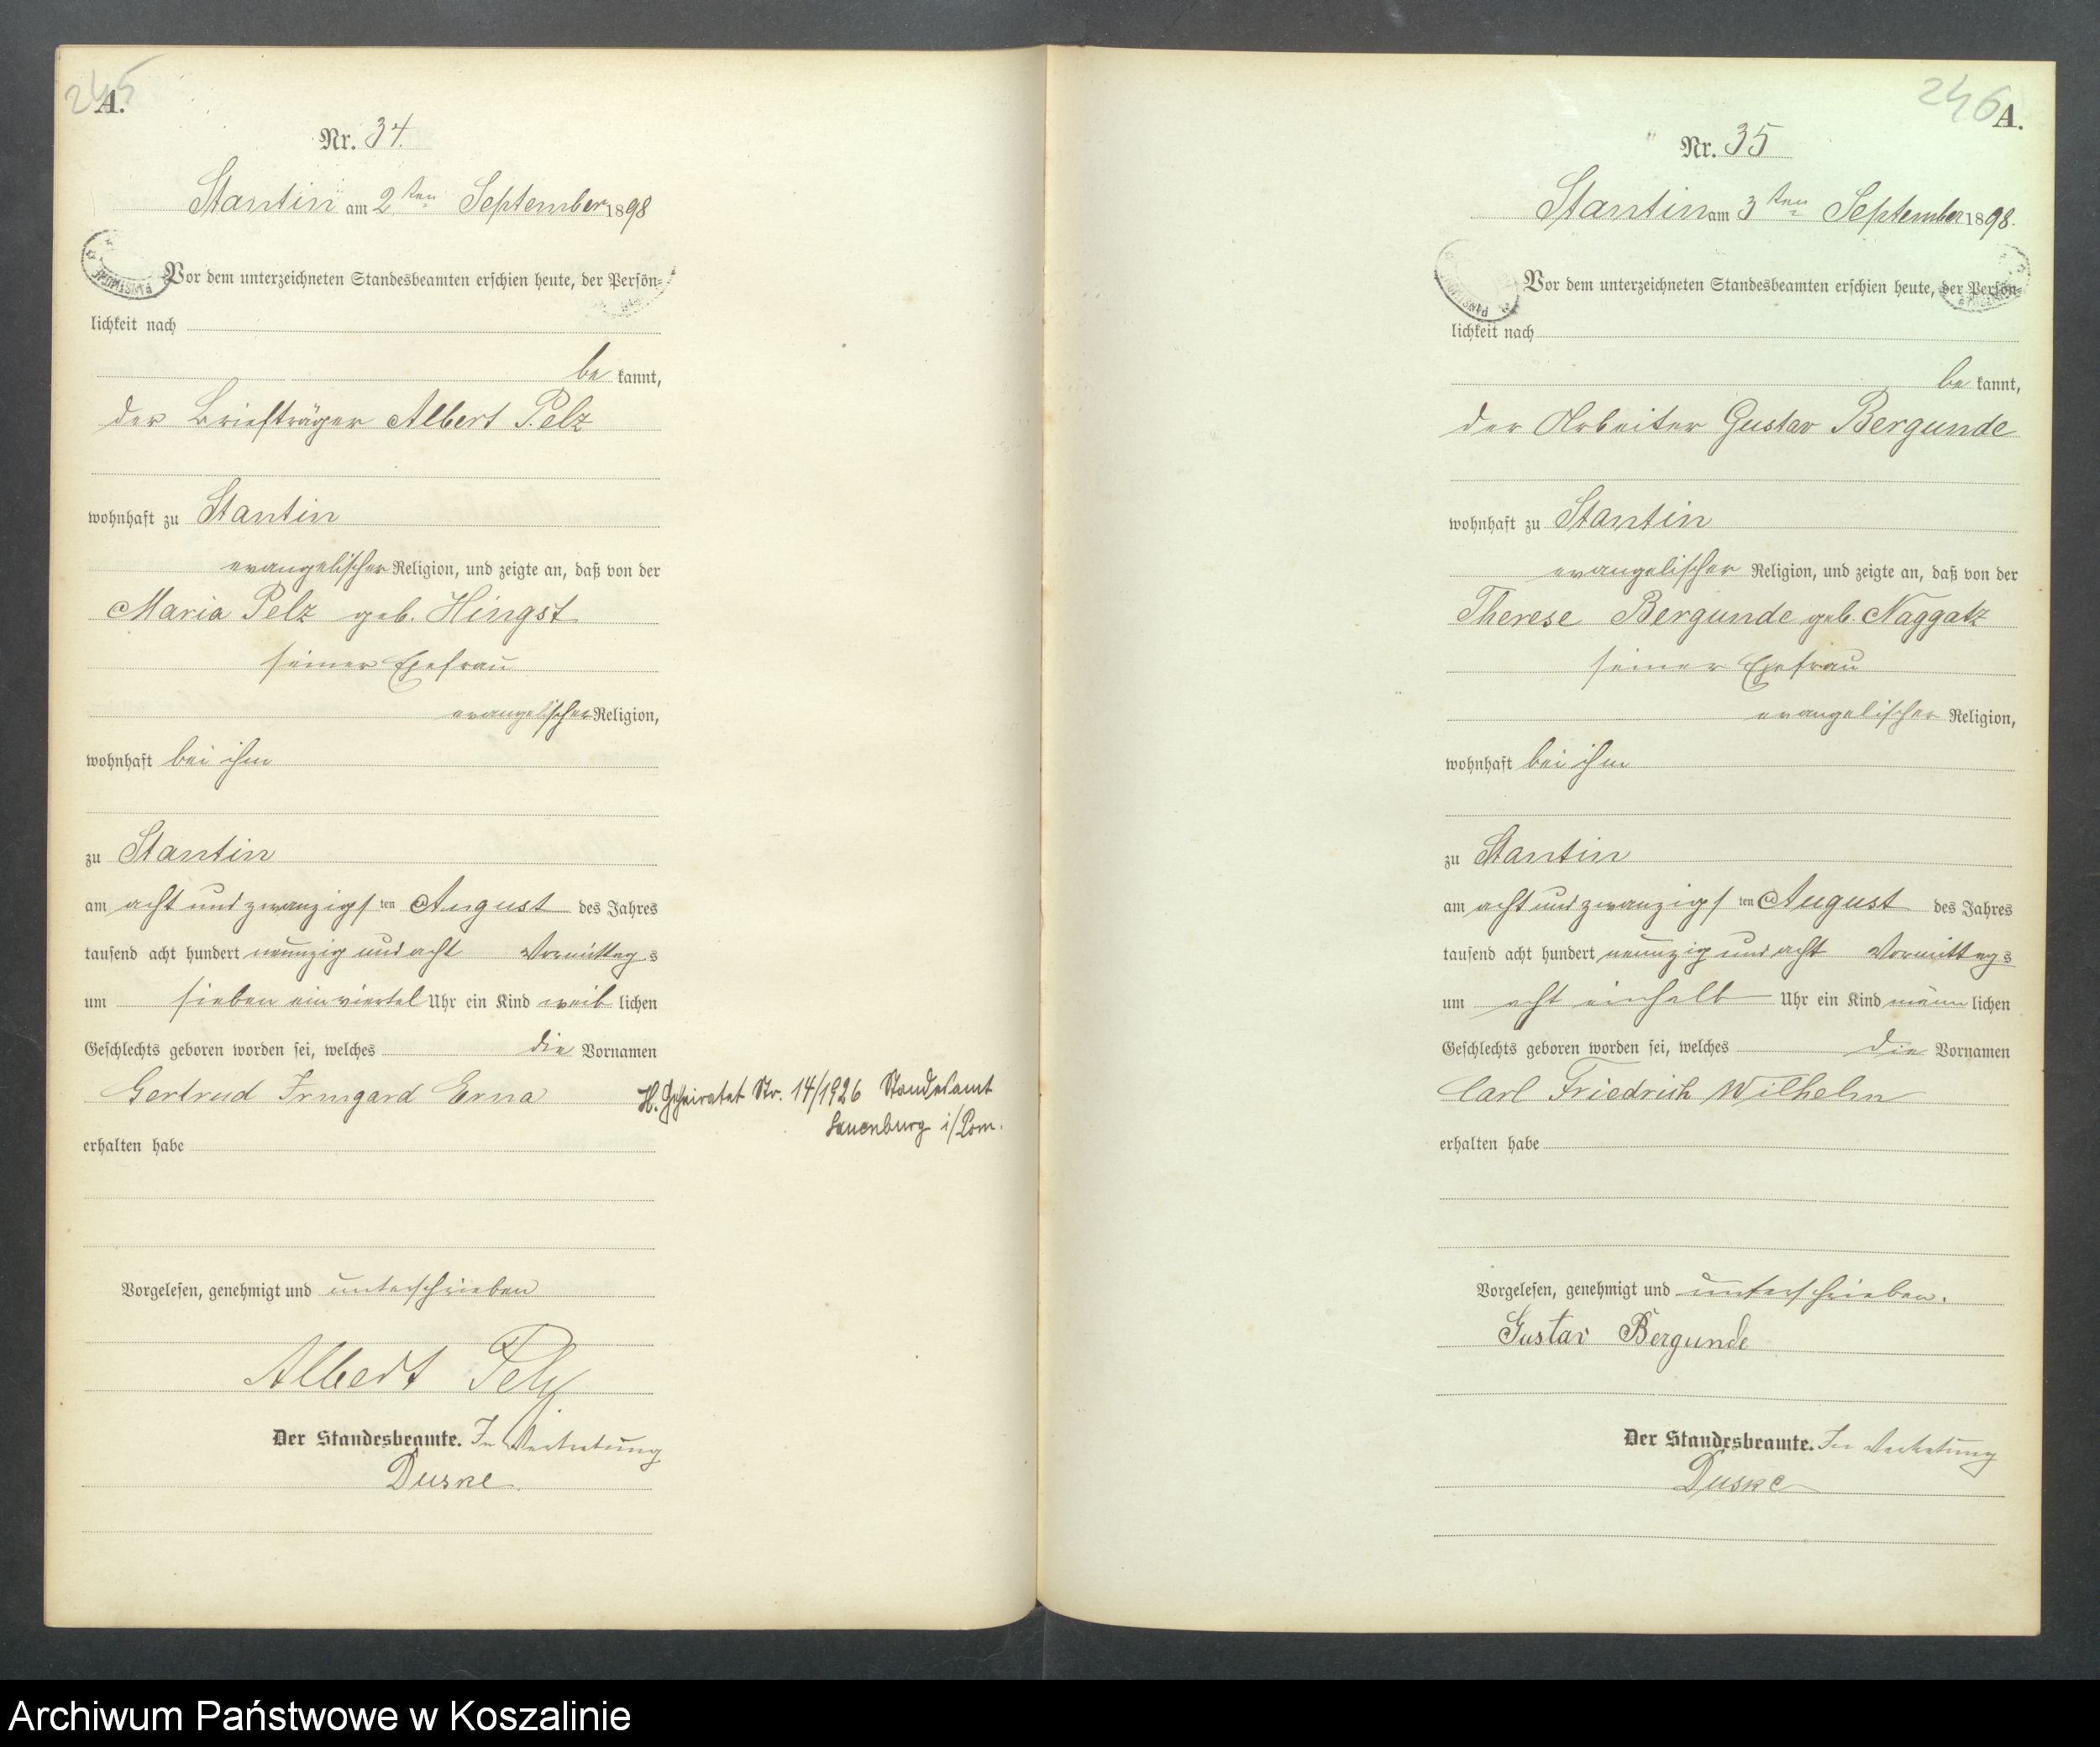 245
A.
Nr. 34.
Stantin am 2ten September 1898
Vor dem unterzeichneten Standesbeamten erschien heute, der Persön-
lichkeit nach
be kannt,
der Briefträger Albert Pelz
wohnhaft zu Stantin
evangelischer Religion, und zeigte an, daß von der
Maria Pelz geb. Hingst
seiner Ehefrau
evangelischer Religion,
wohnhaft bei ihm
zu Stantin
am acht und zwanzigs ten August des Jahres
tausend acht hundert neunzig und acht Vormittag s
um sieben ein viertel Uhr ein Kind weib lichen
Geschlechts geboren worden sei, welches die Vornamen
Gertrud Irmgard Erna
H. Geheiratet Nr. 14/1926 Standesamt
Lauenburg i/Pom.
erhalten habe
Vorgelesen, genehmigt und unterschrieben
Albert Pelz
Der Standesbeamte. In Vertretung
Duske
246
A.
Nr. 35
Stantin am 3ten September 1898.
Vor dem unterzeichneten Standesbeamten erschien heute, der Persön-
lichkeit nach
be kannt,
der Arbeiter Gustav Bergunde
wohnhaft zu Stantin
evangelischer Religion, und zeigte an, daß von der
Therese Bergunde geb. Naggatz
seiner Ehefrau
evangelischer Religion,
wohnhaft bei ihm
zu Stantin
am acht und zwanzigs ten August des Jahres
tausend acht hundert neunzig und acht Vormittag s
um acht einhalb Uhr ein Kind männ lichen
Geschlechts geboren worden sei, welches die Vornamen
Carl Friedrich Wilhelm
erhalten habe
Vorgelesen, genehmigt und unterschrieben.
Gustav Bergunde
Der Standesbeamte. In Vertretung
Duske
Archiwum Państwowe w Koszalinie